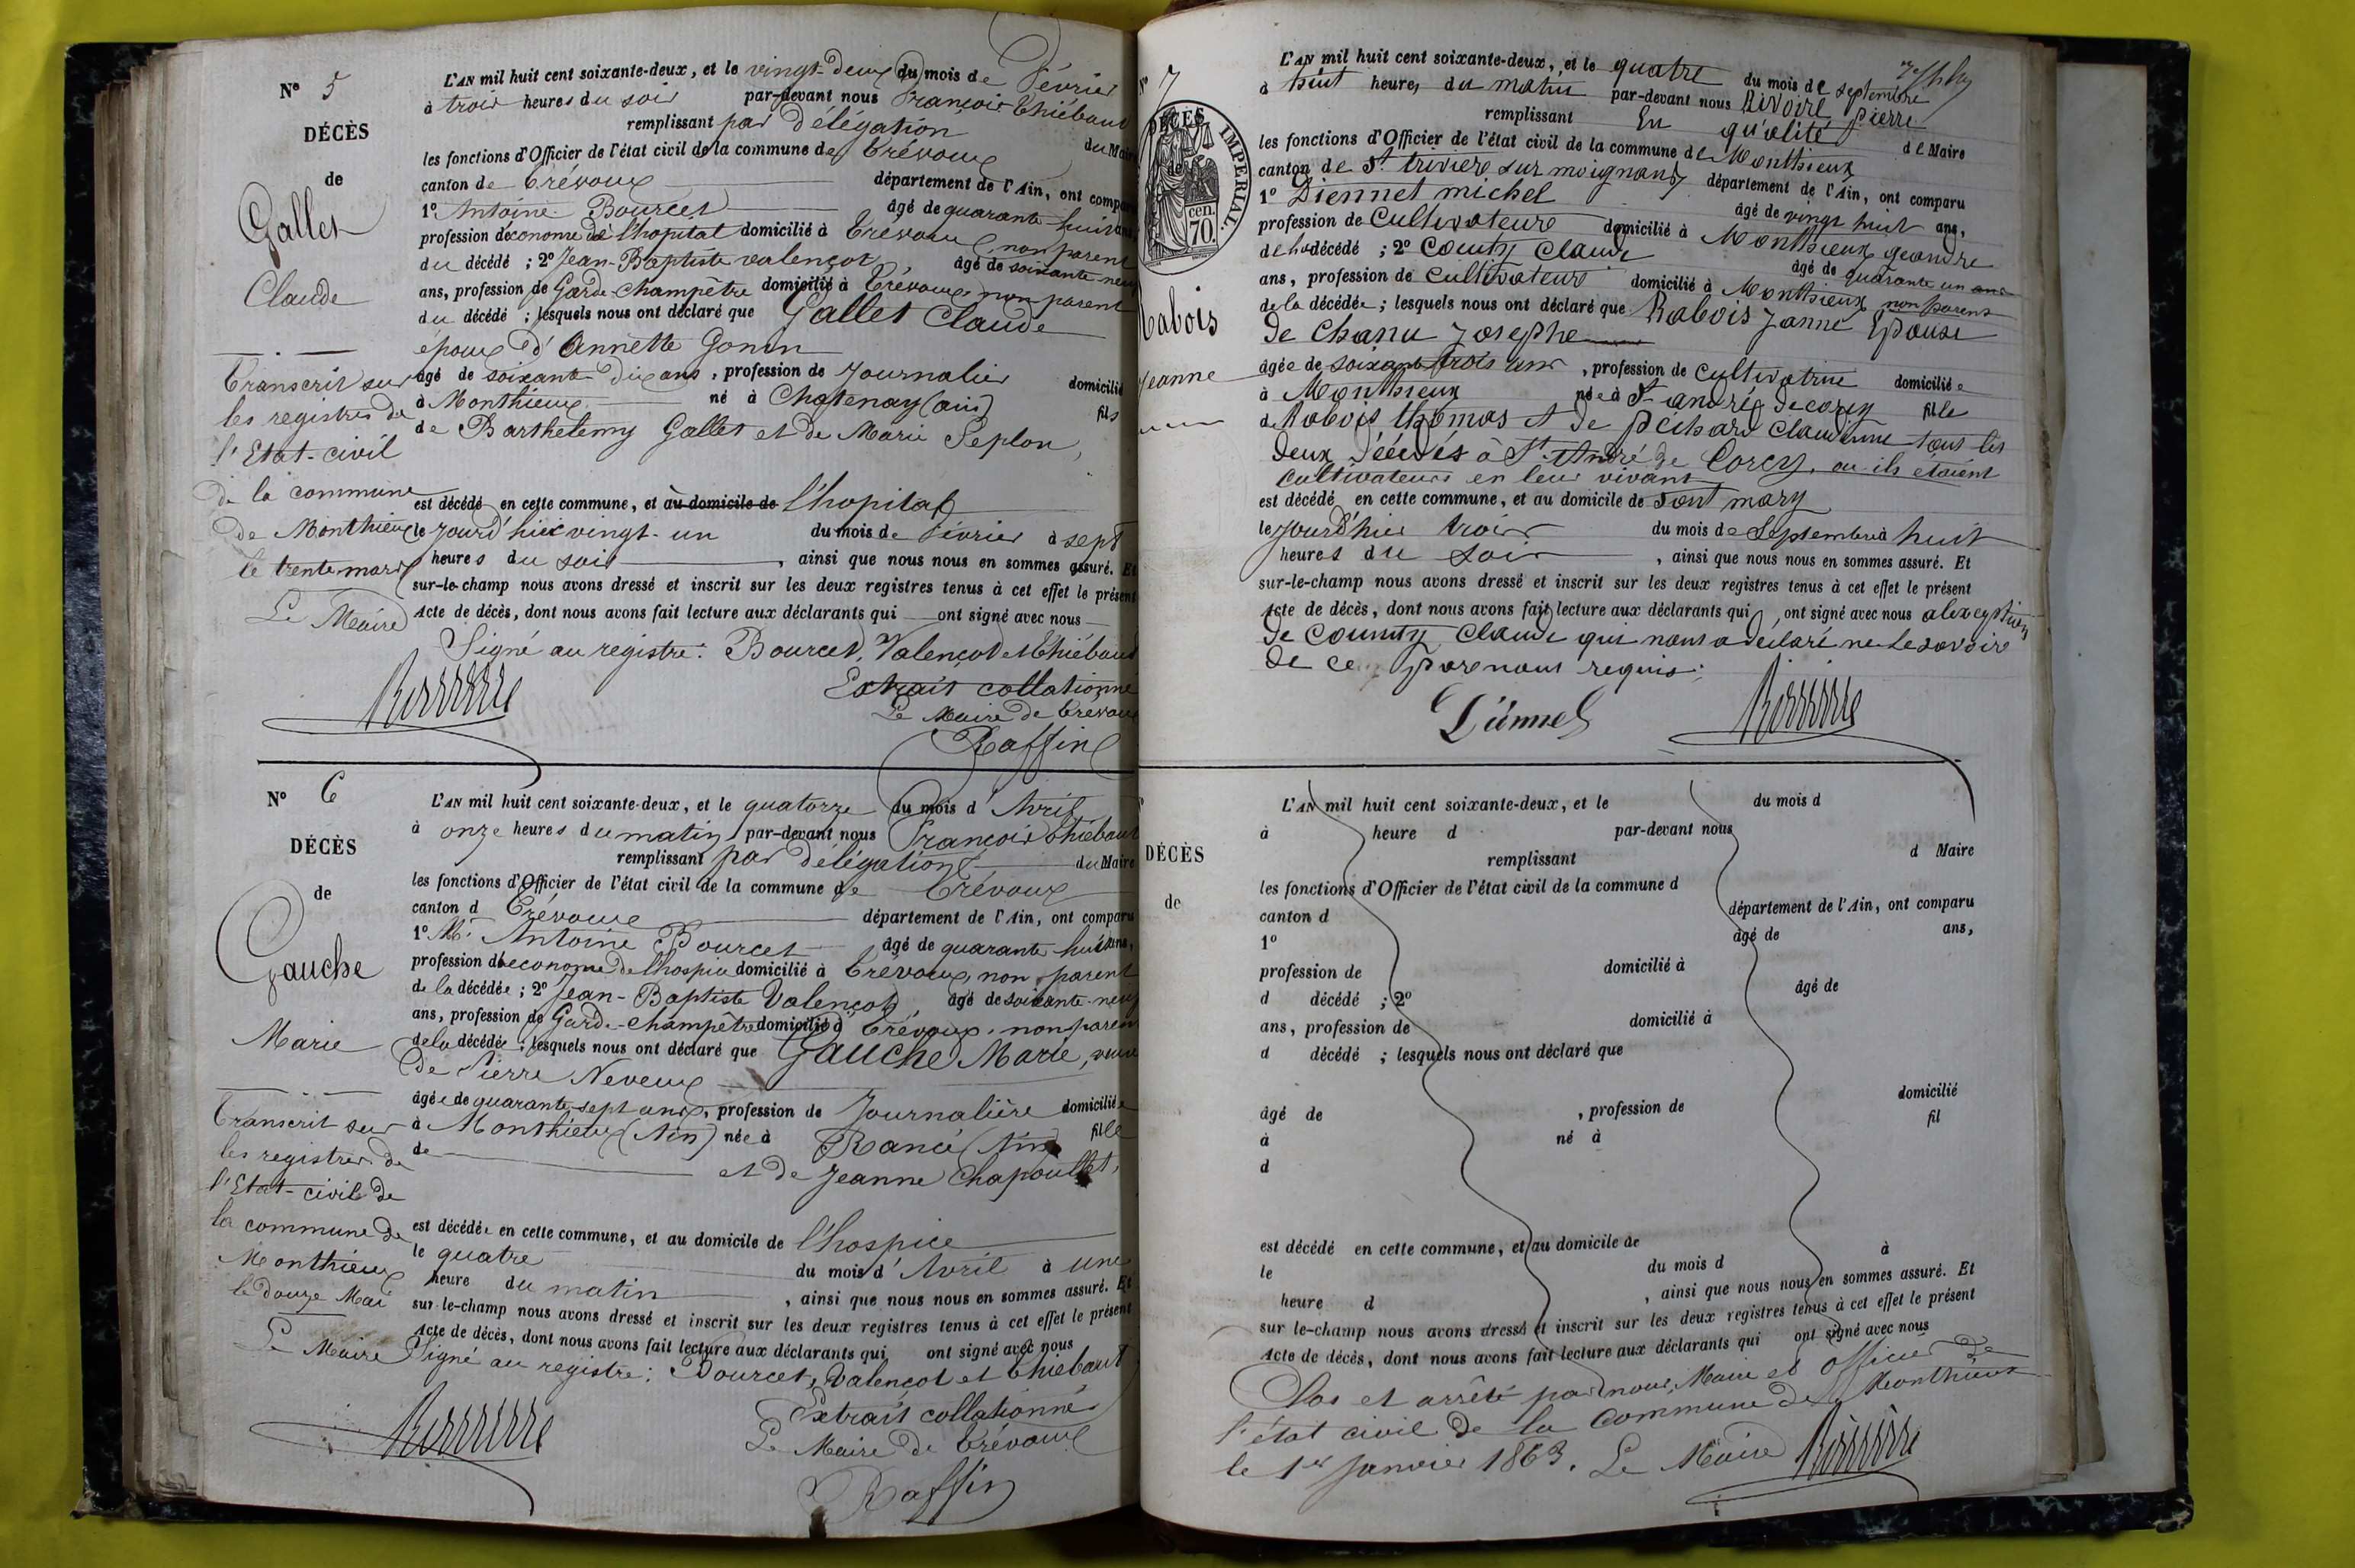 N° 5
DÉCÈS
de
Gallet
Claude
Transcrit sur
les registres de
l'Etat-civil
de la commune
de Monthieux
le trente mars
Le Maire
L'AN mil huit cent soixante-deux, et le vingt-deux du mois de Février
à trois heures du soir par-devant nous François Thiébaud
remplissant par délégation du Maire
les fonctions d'Officier de l'état civil de la commune de Trévoux
canton de Trévoux département de l'Ain, ont comparu
1° Antoine Bourcet âgé de quarante-huit ans,
profession d'économe de l'hopital domicilié à Trévoux non parent
du décédé ; 2° Jean-Baptiste Valençot âgé de soixante-neuf
ans, profession de Garde-Champêtre domicilié à Trévoux non parent
du décédé ; lesquels nous ont déclaré que Gallet Claude
epoux d'Annette Gonin
âgé de soixante-dix ans, profession de Journalier domicilié
à Monthieux né à Chatenay (ain) fils
de Barthelemy Gallet et de Marie Peplon,
est décédé en cette commune, et au domicile de l'hopital
le jourd'hier vingt-un du mois de Février à sept
heures du soir, ainsi que nous nous en sommes assuré. Et
sur-le-champ nous avons dressé et inscrit sur les deux registres tenus à cet effet le présent
Acte de décès, dont nous avons fait lecture aux déclarants qui ont signé avec nous
Signé au registre : Bourcet, Valençot et Thiébaud
Extrait collationné
Le Maire de Trévoux
Raffin
N° 6
DÉCÈS
de
Gauche
Marie
Transcrit sur
les registres de
l'Etat-civil de
la commune de
Monthieux
le douze Mai
Le Maire
L'AN mil huit cent soixante-deux, et le quatorze du mois d'Avril
à onze heures du matin par-devant nous François Thiébaut
remplissant par délégation du Maire
les fonctions d'Officier de l'état civil de la commune de Trévoux
canton d Trévoux département de l'Ain, ont comparu
1° M. Antoine Bourcet âgé de quarante-huit ans,
profession d'econome de l'hospice domicilié à Trévoux, non parent
de la décédée ; 2° Jean-Baptiste Valençot, âgé de soixante-neuf
ans, profession de Garde-Champêtre domicilié à Trévoux, non parent
de la décédée ; lesquels nous ont déclaré que Gauche Marie, veuve
de Pierre Neveux
âgée de quarante-sept ans, profession de Journalière domiciliée
à Monthieux (Ain) née à Rancé (Ain) fille
de et de Jeanne Chapoullet,
est décédée en cette commune, et au domicile de l'hospice
le quatre du mois d'Avril à une
heure du matin, ainsi que nous nous en sommes assuré. Et
sur-le-champ nous avons dressé et inscrit sur les deux registres tenus à cet effet le présent
Acte de décès, dont nous avons fait lecture aux déclarants qui ont signé avec nous
Signé au registre : Bourcet, Valençot et Thiebaut
Extrait collationné
Le Maire de Trévoux
Raffin
N° 7
DÉCÈS
de
IMPERIAL.
cen.
70.
Rabois
Jeanne
L'AN mil huit cent soixante-deux, et le quatre du mois de septembre
à huit heures du matin par-devant nous Rivoire pierre
remplissant En qu'alité de Maire
les fonctions d'Officier de l'état civil de la commune de Monthieux
canton de St trivier sur moignand département de l'Ain, ont comparu
1° Diennet michel âgé de vingt huit ans,
profession de Cultivateure domicilié à Monthieux geandre
de la décédé ; 2° County Claude âgé de quarante un ans
ans, profession de Cultivateure domicilié à Monthieux non parent
de la décédée ; lesquels nous ont déclaré que Rabois Janne Epouse
de Chanu Josephe
âgée de soixante trois ans, profession de Cultivatrice domiciliée
à Monthieux née à St andré de corcy fille
d Rabois thomas et de péchard Claudinne tous les
deux décédés à St André de Corcy, ou ils étaient
Cultivateurs en leur vivant
est décédé en cette commune, et au domicile de sont mary
le jourd'hier trois du mois de Septembre à huit
heures du soir, ainsi que nous nous en sommes assuré. Et
sur-le-champ nous avons dressé et inscrit sur les deux registres tenus à cet effet le présent
Acte de décès, dont nous avons fait lecture aux déclarants qui ont signé avec nous alexeption
de County Claude qui nous a déclaré ne le savoir
de ce par nous requis.
Diennet
L'AN mil huit cent soixante-deux, et le du mois d
à heure d par-devant nous
remplissant d Maire
les fonctions d'Officier de l'état civil de la commune d
canton d département de l'Ain, ont comparu
1° âgé de ans,
profession de domicilié à
d décédé ; 2° âgé de
ans, profession de domicilié à
d décédé ; lesquels nous ont déclaré que
âgé de , profession de domicilié
à né à fil
d
est décédé en cette commune, et au domicile de
le du mois d à
heure d , ainsi que nous nous en sommes assuré. Et
sur le-champ nous avons dressé et inscrit sur les deux registres tenus à cet effet le présent
Acte de décès, dont nous avons fait lecture aux déclarants qui ont signé avec nous
DÉCÈS
de
Clos et arrêté par nous, Maire et officier de
l'état civil de la Commune de Monthieux
le 1er Janvier 1863. Le Maire